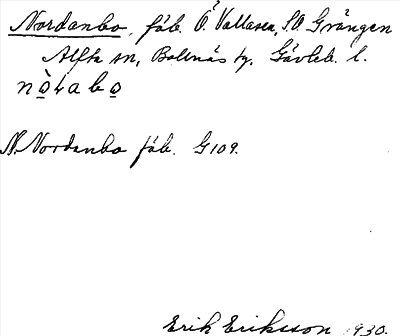 Nordanbo, fäb. Ö. Vallasen, S.O. Grängen
Alfta sn, Bollnäs tg. Gävleb. l.
nò̱ɥabo̱
N. Nordanbo fäb. G109.
Erik Eriksson 1930.